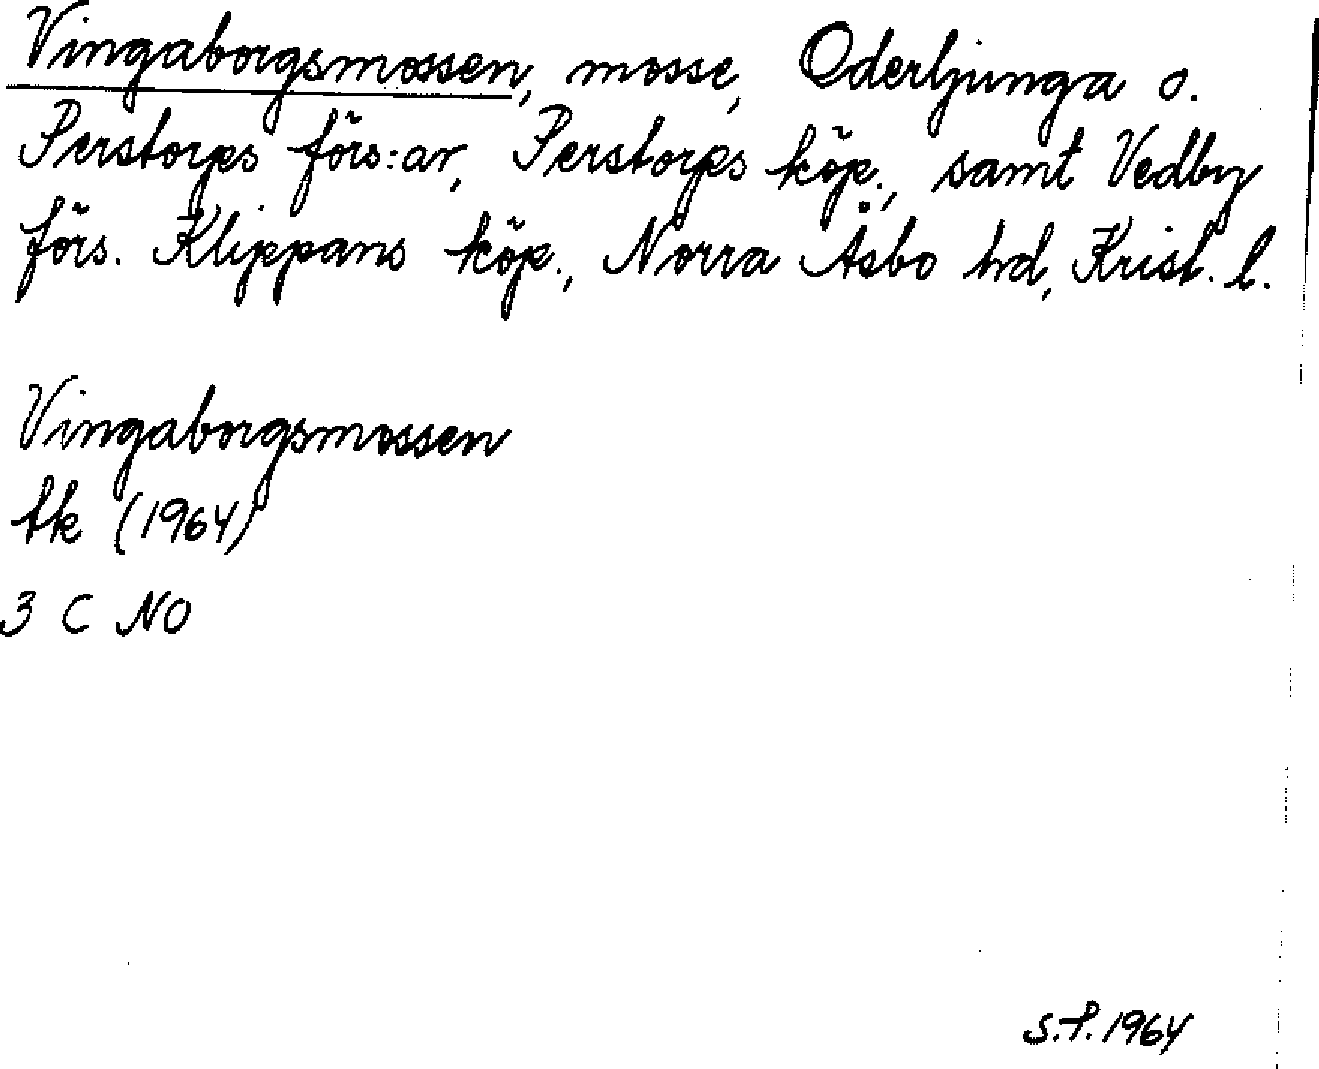 Vingaborgsmossen, mosse, Oderljunga o.
Perstorps förs:ar, Perstorps köp., samt Vedby
förs. Klippans köp., Norra Åsbo hd, Krist. l.
Vingaborgsmossen
tk (1964)
3 C NO
S.P. 1964